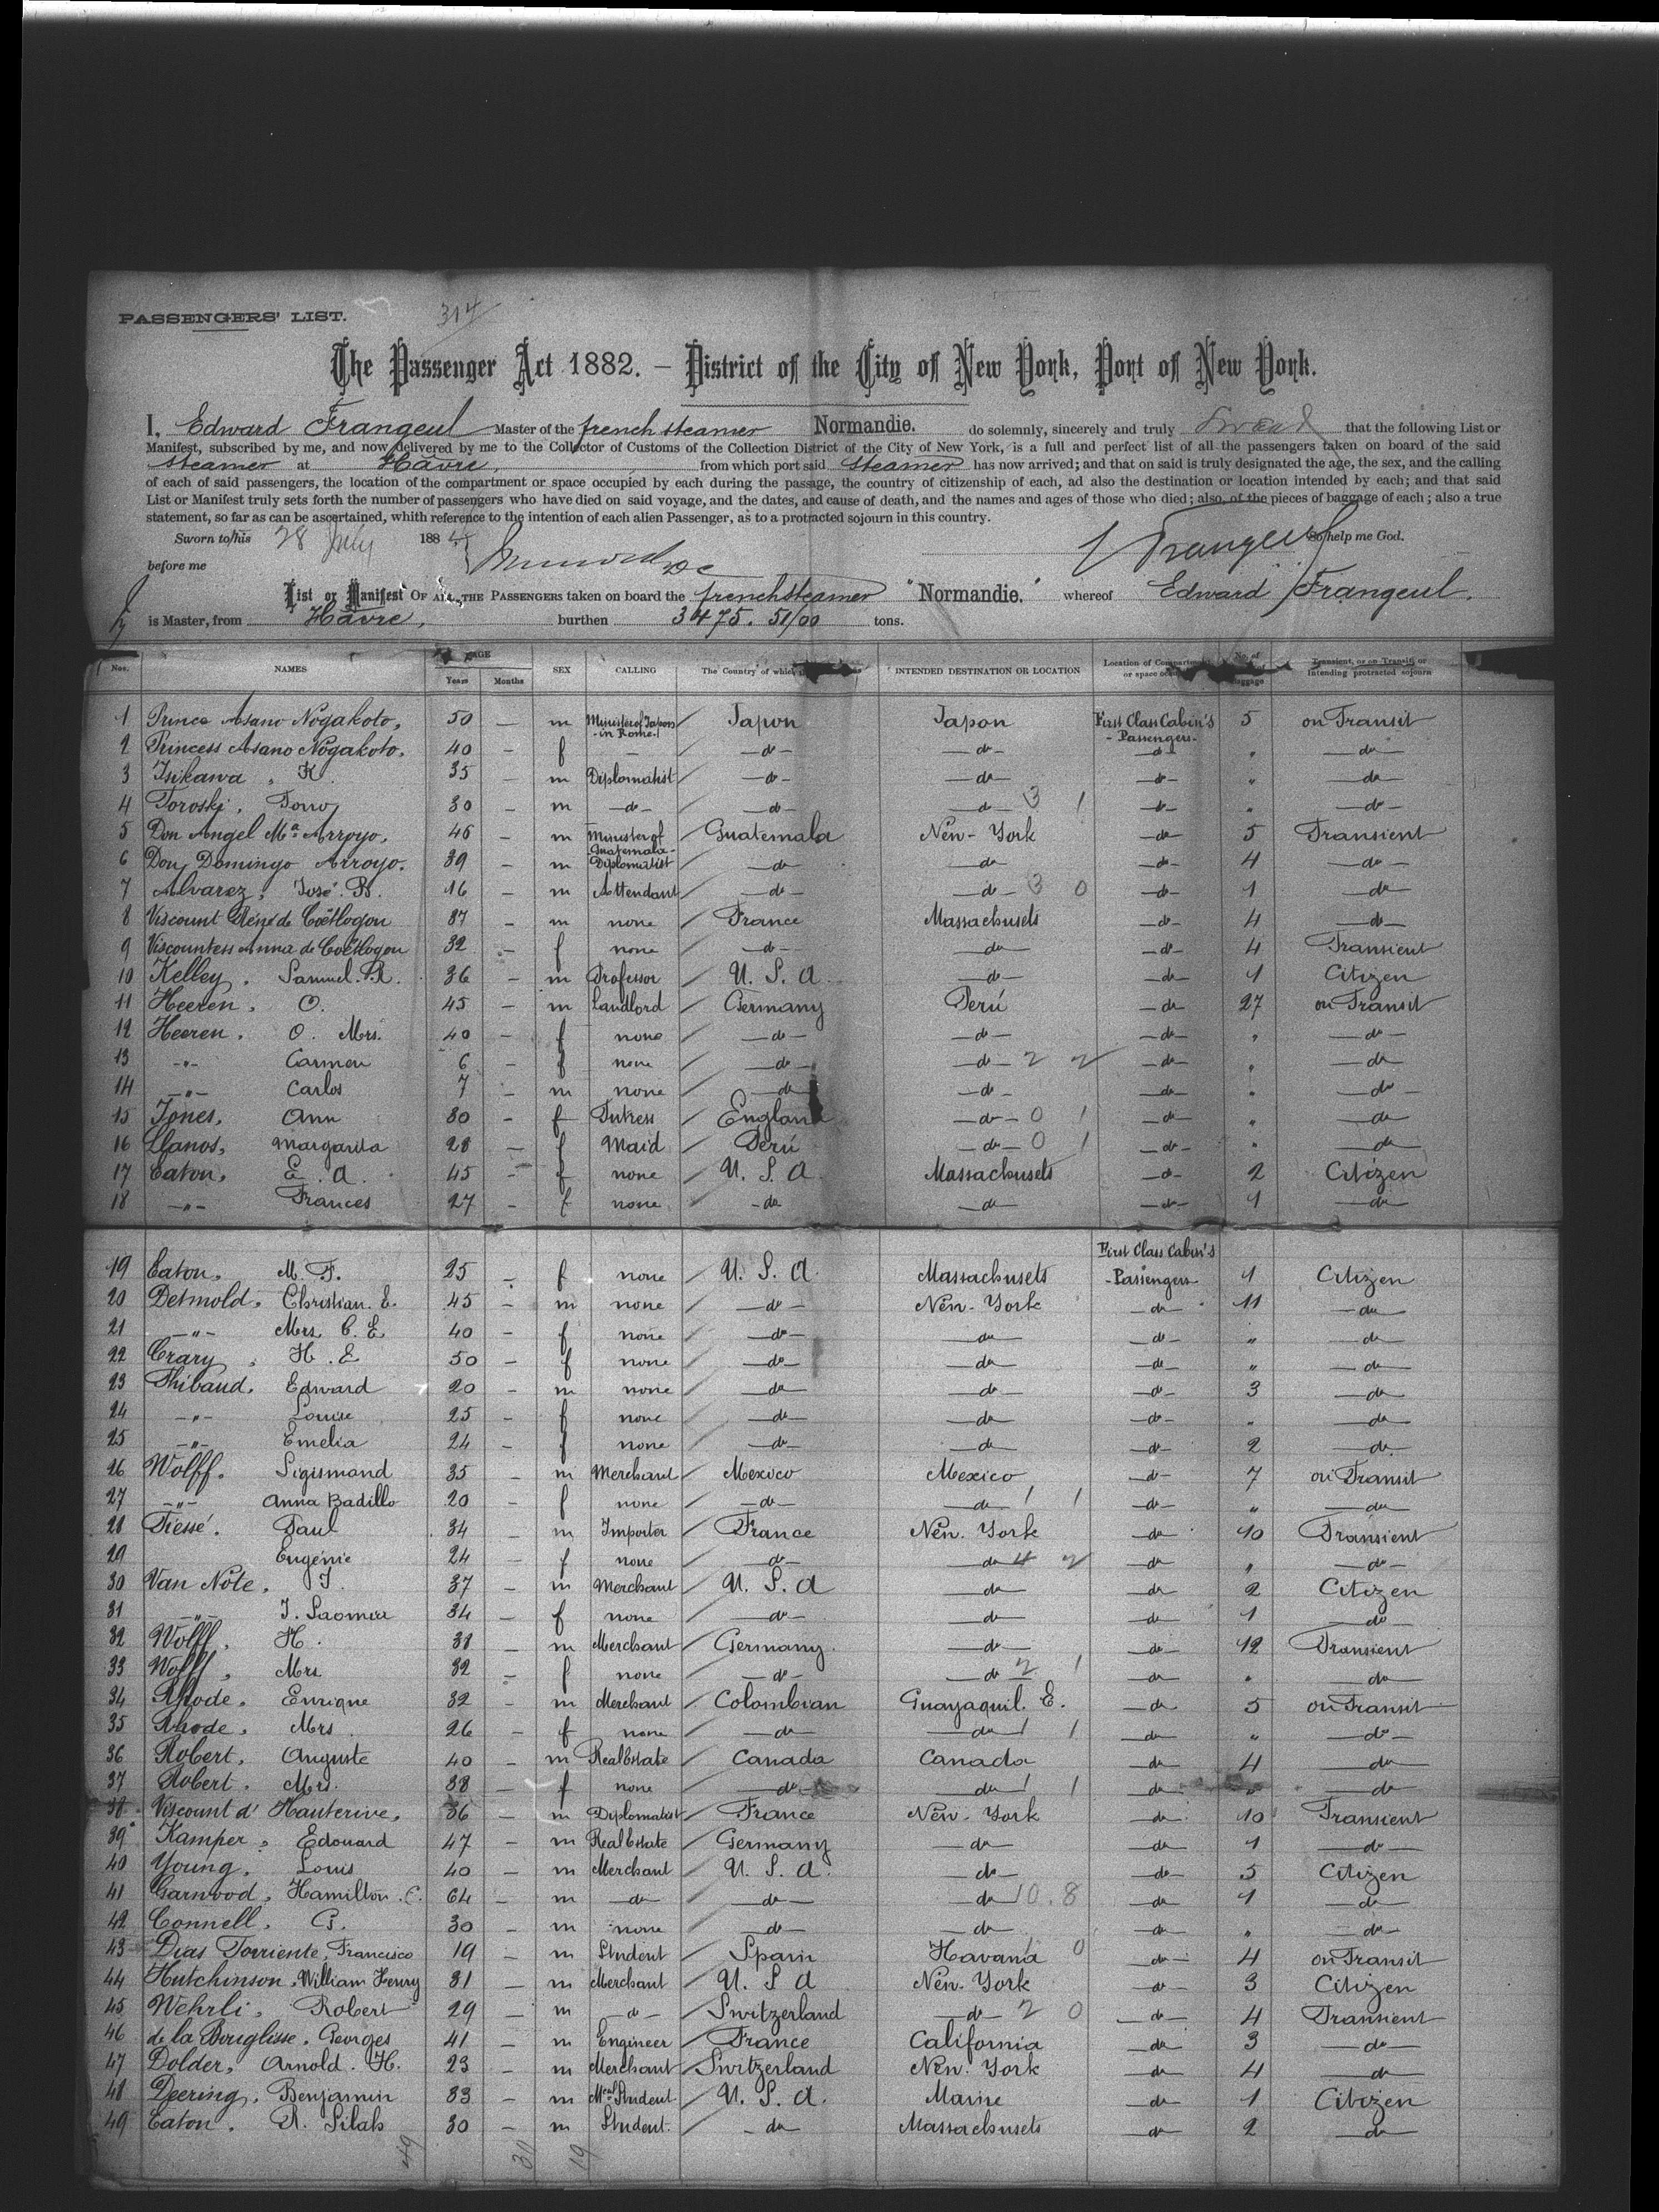 PASSENGERS' LIST.
314
The Passenger Act 1882. – District of the City of New York, Port of New York.
I, Edward Frangeul Master of the french steamer Normandie. do solemnly, sincerely and truly Swear that the following List or
Manifest, subscribed by me, and now delivered by me to the Collector of Customs of the Collection District of the City of New York, is a full and perfect list of all the passengers taken on board of the said
steamer at Hâvre, from which port said steamer has now arrived; and that on said is truly designated the age, the sex, and the calling
of each of said passengers, the location of the compartment or space occupied by each during the passage, the country of citizenship of each, ad also the destination or location intended by each; and that said
List or Manifest truly sets forth the number of passengers who have died on said voyage, and the dates, and cause of death, and the names and ages of those who died; also, of the pieces of baggage of each; also a true
statement, so far as can be ascertained, whith reference to the intention of each alien Passenger, as to a protracted sojourn in this country.
Sworn to this 28 July 1884 Frangeul So help me God.
before me
List or Manifest OF ALL THE PASSENGERS taken on board the french steamer "Normandie." whereof Edward Frangeul.
is Master, from Hâvre, burthen 3475. 51/00 tons.
Nos. NAMES AGE Years Months SEX CALLING The Country of which INTENDED DESTINATION OR LOCATION Location of Compartment or space No. of Baggage Transient, or on Transit, or Intending protracted sojourn
1 Prince Asano Nogakoto, 50 — m Minister of Japon in Rome. Japon Japon First Class Cabin's Passengers. 5 on Transit
2 Princess Asano Nogakoto. 40 - f - -do- -do- -do- " -do-
3 Isikawa, K. 35 - m Diplomatist -do- -do- -do- " -do-
4 Toroski, Tono 30 - m -do- -do- -do- 3 1 -do- " -do-
5 Don Angel Ma. Arroyo, 46 - m Minister of Guatemala Guatemala Nèn-York -do- 5 Transient
6 Don Domingo Arroyo. 39 - m Diplomatist -do- -do- -do- 4 -do-
7 Alvarez, José B. 16 - m Attendant -do- -do- 3 0 -do- 1 -do-
8 Viscount Réné de Coëtlogon 37 - m none France Massachusets -do- 4 -do-
9 Viscountess Anna de Coëtlogon 32 - f none -do- -do- -do- 4 Transient
10 Kelley, Samuel. R. 36 - m Professor U. S. A. -do- -do- 1 Citizen
11 Heeren, O. 45 - m Landlord Germany Perú -do- 27 on Transit
12 Heeren. O. Mrs. 40 - f none -do- -do- -do- " -do-
13 -"- Carmen 6 - f none -do- -do- 2 2 -do- " -do-
14 -"- Carlos 7 - m none -do- -do- -do- " -do-
15 Jones, Ann 30 - f England -do- 0 1 -do- " -do-
16 Llanos, Margarita 28 - f Maid Perú -do- 0 1 -do- " -do-
17 Eaton, E. A. 45 - f none U. S. A. Massachusets -do- 2 Citizen
18 -"- Frances 27 - f none -do- -do- -do- 1 -do-
19 Eaton, M. F. 25 - f none U. S. A. Massachusets First Class Cabin's Passengers 1 Citizen
20 Detmold, Christian. E. 45 - m none -do- Nèn-York -do- 11 -do-
21 -"- Mrs. C. E. 40 - f none -do- -do- -do- " -do-
22 Crary, H. E 50 - f none -do- -do- -do- " -do-
23 Thibaud, Edward 20 - m none -do- -do- -do- 3 -do-
24 -"- Louise 25 - f none -do- -do- -do- " -do-
25 -"- Emelia 24 - f none -do- -do- -do- 2 -do-
26 Wolff. Sigismond 35 - m Merchant Mexico Mexico -do- 7 on Transit
27 -"- Anna Badillo 20 - f none -do- -do- 1 1 -do- " -do-
28 Tiessé. Paul 34 - m Importer France Nèn. York -do- 10 Transient
29 Eugénie 24 - f none -do- -do- 4 2 -do- " -do-
30 Van Nôte, J. 37 - m Merchant U. S. A -do- -do- 2 Citizen
31 -"- J. 34 - f none -do- -do- -do- 1 -do-
32 Wolff. H. 31 - m Merchant Germany -do- -do- 12 Transient
33 Wolff, Mrs. 32 - f none -do- -do- 2 1 -do- " -do-
34 Rhode, Enrique 32 - m Merchant Colombian Guayaquil. E. -do- 5 on Transit
35 Rhode. Mrs. 26 - f none -do- -do- 1 1 -do- " -do-
36 Robert, Auguste 40 - m Real Estate Canada Canada -do- 4 -do-
37 Robert. Mrs. 38 - f none -do- -do- 1 1 -do- " -do-
38 Viscount d'Hauterive, 36 - m Diplomatist France Nèn-York -do- 10 Transient
39 Kamper, Edouard 47 - m Real Estate Germany -do- -do- 1 -do-
40 Young, Louis 40 - m Merchant U. S. A. -do- -do- 5 Citizen
41 Garwood, Hamilton. C. 64 - m -do- -do- -do- 10.8 -do- 1 -do-
42 Connell, G. 30 - m none -do- -do- -do- " -do-
43 Dias Torriente, Francisco 19 - m Student Spain Havana 0 -do- 4 on Transit
44 Hutchinson, William Henry 31 - m Merchant U. S. A Nèn-York -do- 3 Citizen
45 Wehrli, Robert 29 - m -do- Switzerland -do- 2 0 -do- 4 Transient
46 de la Bouglisse, Georges 41 - m Engineer France California -do- 3 -do-
47 Dolder, Arnold. H. 23 - m Merchant Switzerland Nèn. York -do- 4 -do-
48 Deering, Benjamin 33 - m Mcal Student U. S. A. Maine -do- 1 Citizen
49 Eaton. R. Silah 30 - m Student. -do- Massachusets -do- 2 -do-
49 30 19